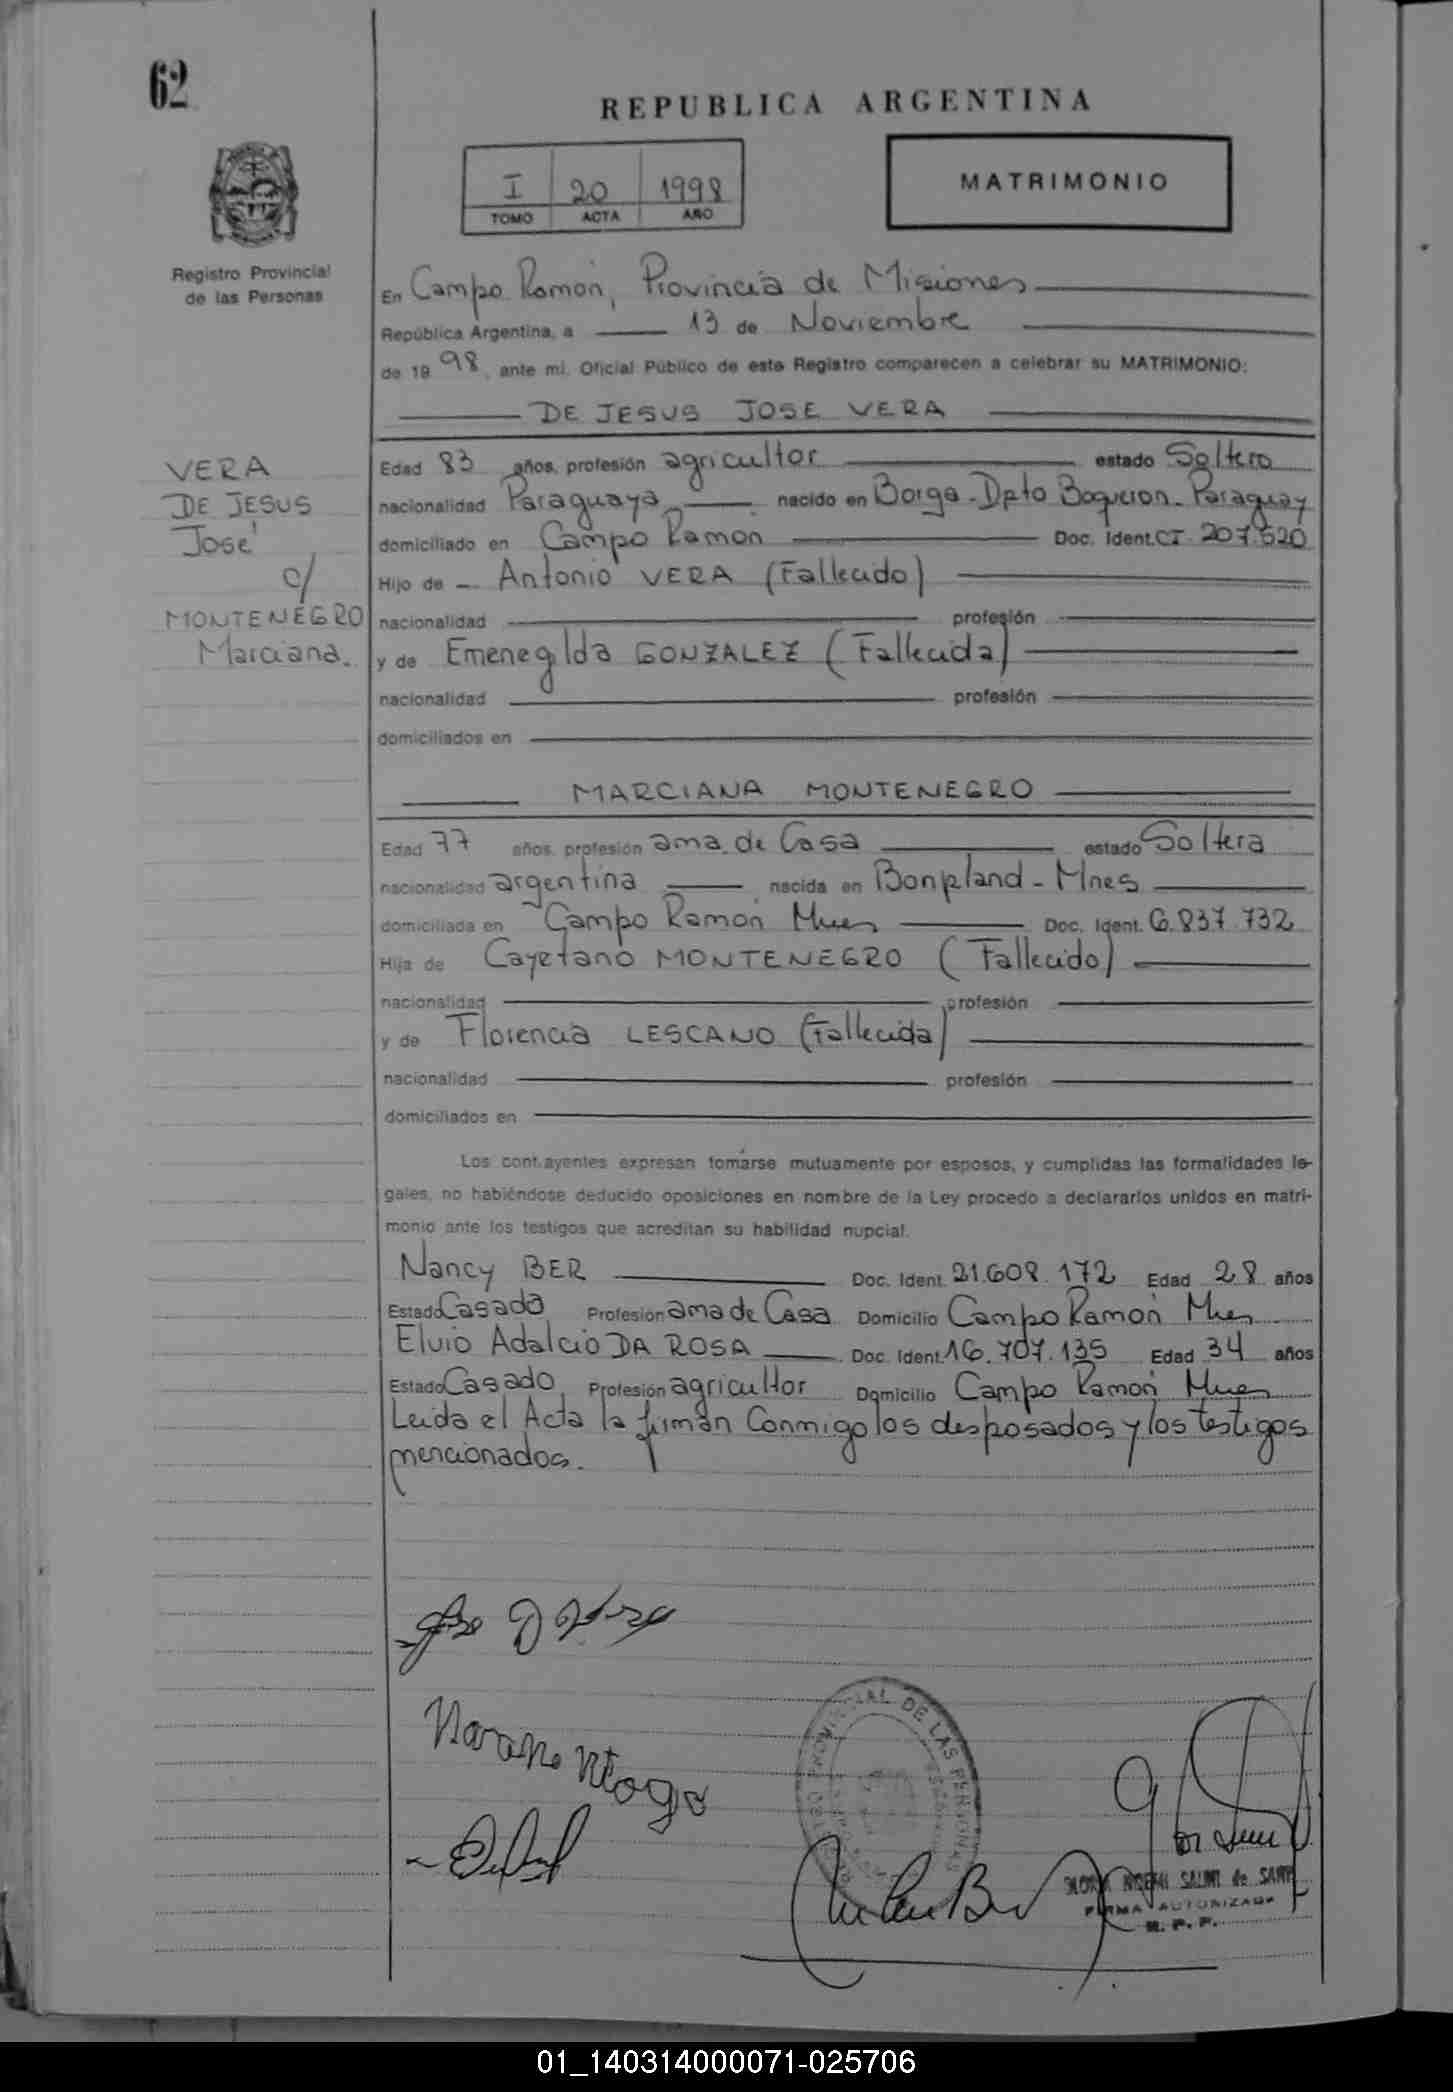 62
REPUBLICA ARGENTINA
I 20 1998
TOMO ACTA AÑO
MATRIMONIO
Registro Provincial
de las Personas
En Campo Ramón, Provincia de Misiones
República Argentina, a 13 de Noviembre
de 19 98, ante mí, Oficial Público de este Registro comparecen a celebrar su MATRIMONIO:
DE JESUS JOSE VERA
VERA
DE JESUS
José
c/
MONTENEGRO
Marciana.
Edad 83 años, profesión agricultor estado Soltero
nacionalidad Paraguaya nacido en Borga - Dpto Boqueron - Paraguay
domiciliado en Campo Ramón Doc. Ident. CI 207.520
Hijo de - Antonio VERA (Fallecido)
nacionalidad profesión
y de Emenegilda GONZALEZ (Fallecida)
nacionalidad profesión
domiciliados en
MARCIANA MONTENEGRO
Edad 77 años, profesión ama de Casa estado Soltera
nacionalidad argentina nacida en Bonpland - Mnes
domiciliada en Campo Ramón Mnes Doc. Ident. 6.837.732
Hija de Cayetano MONTENEGRO (Fallecido)
nacionalidad profesión
y de Florencia LESCANO (Fallecida)
nacionalidad profesión
domiciliados en
Los contrayentes expresan tomarse mutuamente por esposos, y cumplidas las formalidades le-
gales, no habiéndose deducido oposiciones en nombre de la Ley procedo a declararlos unidos en matri-
monio ante los testigos que acreditan su habilidad nupcial.
Nancy BER Doc. Ident. 21.608.172 Edad 28 años
Estado Casada Profesión ama de Casa Domicilio Campo Ramón Mnes
Elvio Adalcio DA ROSA Doc. Ident. 16.707.135 Edad 34 años
Estado Casado Profesión agricultor Domicilio Campo Ramón Mnes
Leida el Acta la firman Conmigo los desposados y los testigos
mencionados.
PROVINCIAL DE LAS PERSONAS
FIRMA AUTORIZADA
R. P. P.
01_140314000071-025706